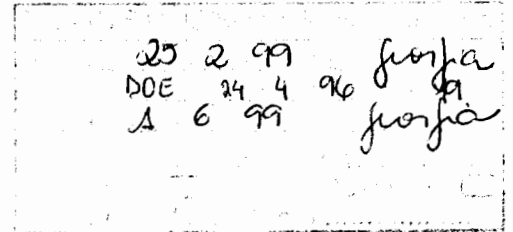 25 2 99
DOE 24 4 96 9
1 6 99